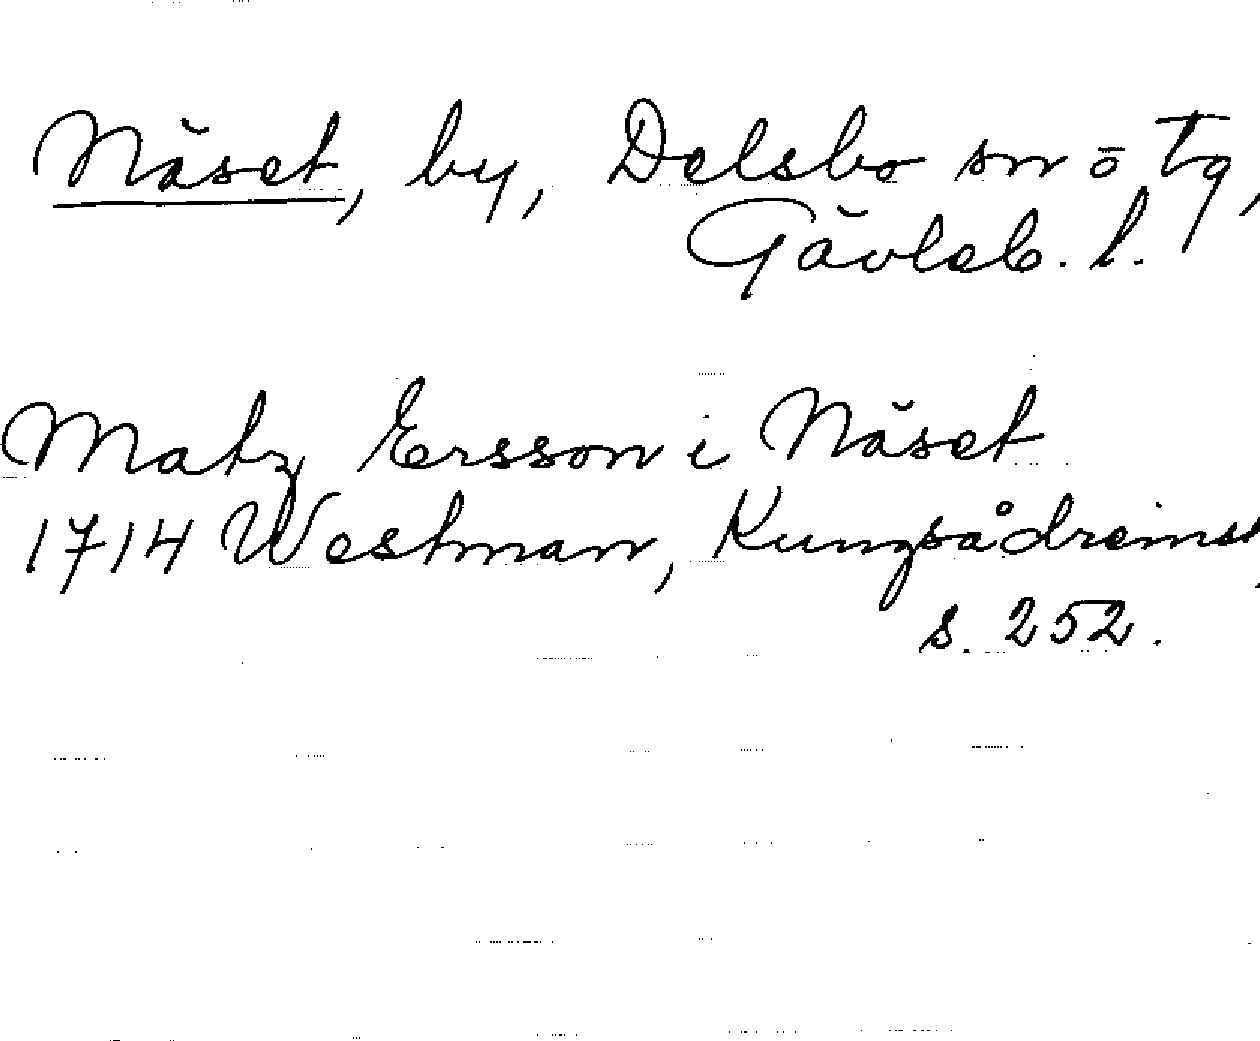 Näset, by, Delsbo sn o Tg,
Gävleb. l.
Matz Ersson i Näset
1714 Westman, Kungsådreinst
s. 252.